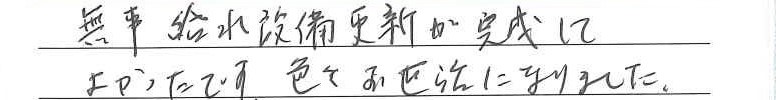 無事給水設備更新が完成して
よかったです 色々お世話になりました。